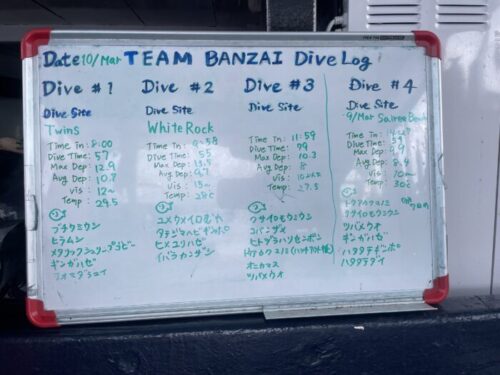 Date 10/Mar TEAM BANZAI Dive Log
Dive #1
Dive Site
Twins
Time In: 8:00
Dive Time: 57
Max Dep: 12.9
Avg Dep: 10.8
Vis: 12~
Temp: 29.5
ブチウミウシ
ヒラムシ
メタリックシュリンプゴビー
ギンガハゼ
Dive #2
Dive Site
White Rock
Time In: 9:58
Dive Time: 55
Avg Dep: 9.7
Vis: 15~
Temp: 28℃
コメツメイロむれ
タテジマヘビギンポ
ヒメユリハゼ
イバラカンザシ
Dive #3
Dive Site
Time In: 11:59
Dive Time:
Max Dep: 10.3
Avg Dep: 8
Vis:
Temp:
クサイロモウミウシ
コバンザメ
ヒトヅラハリセンボン
オニカマス
ツバメウオ
Dive #4
Dive Site
9/Mar Sairee Beach
Time In:
Dive Time:
Max Dep:
Avg Dep: 8.4
Vis: 10~
Temp: 30℃
クサイロモウミウシ
ツバメウオ
ギンガハゼ
ハタタテギンポ
ハタタテダイ